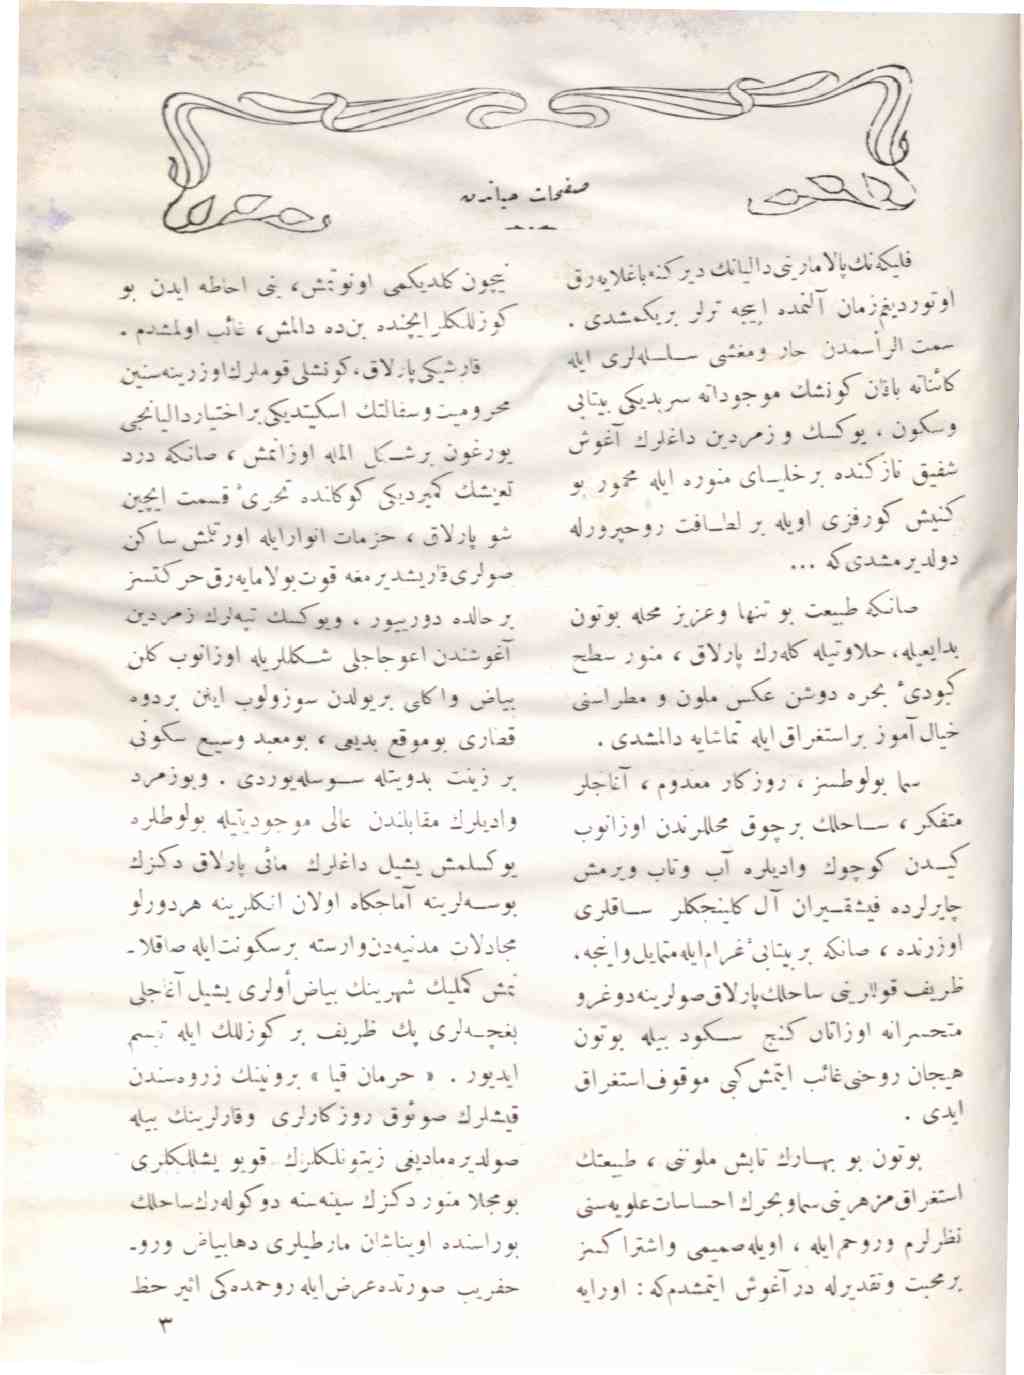 صفحات حیاتدن
فلیكه‌نك پالامارینی دالیانك دیركنه باغلایه‌رق
اوتوردیغم زمان آلنمده اینجه ترلر بریكمشدی .
سمت الرأسمدن حار ومغشی سلسله‌لری ایله
كائناته باقان كونشك موجوداته سربدیكی بیتابی
وسكون ، یوكسك و زمردین داغلرك آغوش
شفیق نازكنده بر خلیای منوره ایله مخمور بو
كنیش كورفزی اویله بر لطافت روحپرورله
دولدیرمشدی كه ...
صانكه طبیعت بو تنها وعزیز محله بوتون
بدایعیله، حلاوتیله كله‌رك پارلاق ، منور سطح
كبودیٔ بحره دوشن عكس ملون و مطراسنی
خیال آموز بر استغراق ایله تماشایه دالمشدی .
سما بولوطسز ، روزكار معدوم ، آغاجلر
متفكر ، ساحلك بر چوق محللرندن اوزانوب
كیدن كوچوك وادیلره آب وتاب ویرمش
چایرلرده فیشقیران آل كلینجكلر ساقلری
اوزرنده ، صانكه بر بیتابیٔ غرام ایله متمایل و اینجه ،
ظریف قوللرینی ساحلك پارلاق صولرینه دوغرو
متحسرانه اوزاتان كنج سكود بیله بوتون
هیجان روحنی غائب ایتمش كبی موقوف استغراق
ایدی .
بوتون بو بهارك تابش ملوننی ، طبیعتك
استغراق مزهرینی سما و بحرك احساسات علویه‌سنی
نظرلرم وروحم ایله ، اویله صمیمی واشتراكسز
بر محبت وتقدیرله در آغوش ایتمشدم كه : اورایه
نیچون كلدیكمی اونوتمش، بنی احاطه ایدن بو
كوزللكلر ایچنده بن ده دالمش، غائب اولمشدم .
قارشیكی پارلاق، كونشلی قوملرك اوزرینه سنین
محرومیت وسفالتك اسكیتدیكی بر اختیار دالیانجی
یورغون بر شكل المله اوزانمش ، صانكه درد
تعیشك كمیردیكی كوكلنده تحریٔ قسمت ایچین
شو پارلاق ، حزمات انوار ایله اورتلمش ساكن
صولری قاریشدیرمغه قوت بولامایه‌رق حركتسز
بر حالده دورییور ، ویوكسك تپه‌لرك زمردین
آغوشندن اعوجاجلی شكللریله اوزانوب كلن
بیاض واكلی بر یولدن سوزولوب اینن بر دوه
قطاری بوموقع بدیعی ، بومعبد وسیع سكونی
بر زینت بدویتله سوسله‌یوردی . وبوزمرد
وادیلرك مقابلندن عالی موجودیتیله بولوطلره
یوكسلمش یشیل داغلرك مائی پارلاق دكزك
بوسه‌لرینه آماجكاه اولان اتكلرینه هردورلو
مجادلات مدنیه‌دن وارسته بر سكونت ایله صاقلا-
نمش كملیك شهرینك بیاض أولری یشیل آغاجلی
بغچه‌لری پك ظریف بر كوزللك ایله تبسم
ایدیور . « خرمان قیا » بروننك زروه‌سندن
قیشلرك صوئوق روزكارلری وقارلرینك بیله
صولدیره‌مادیغی زیتونلكلرك قویو یشللكلری
بومجلا منور دكزك سینه‌سنه دوكوله‌رك ساحلك
بوراسنده اویناشان مارطیلری دها بیاض ورو-
حفریب صورتده عرض ایله روحمده‌كی اثیر حظ
٣